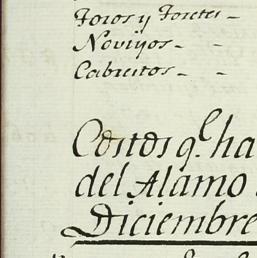 Toros y Toretes -
Noviyos - -
Cabrestos - -
Costos q.e ha
del Alamo
Diciembre